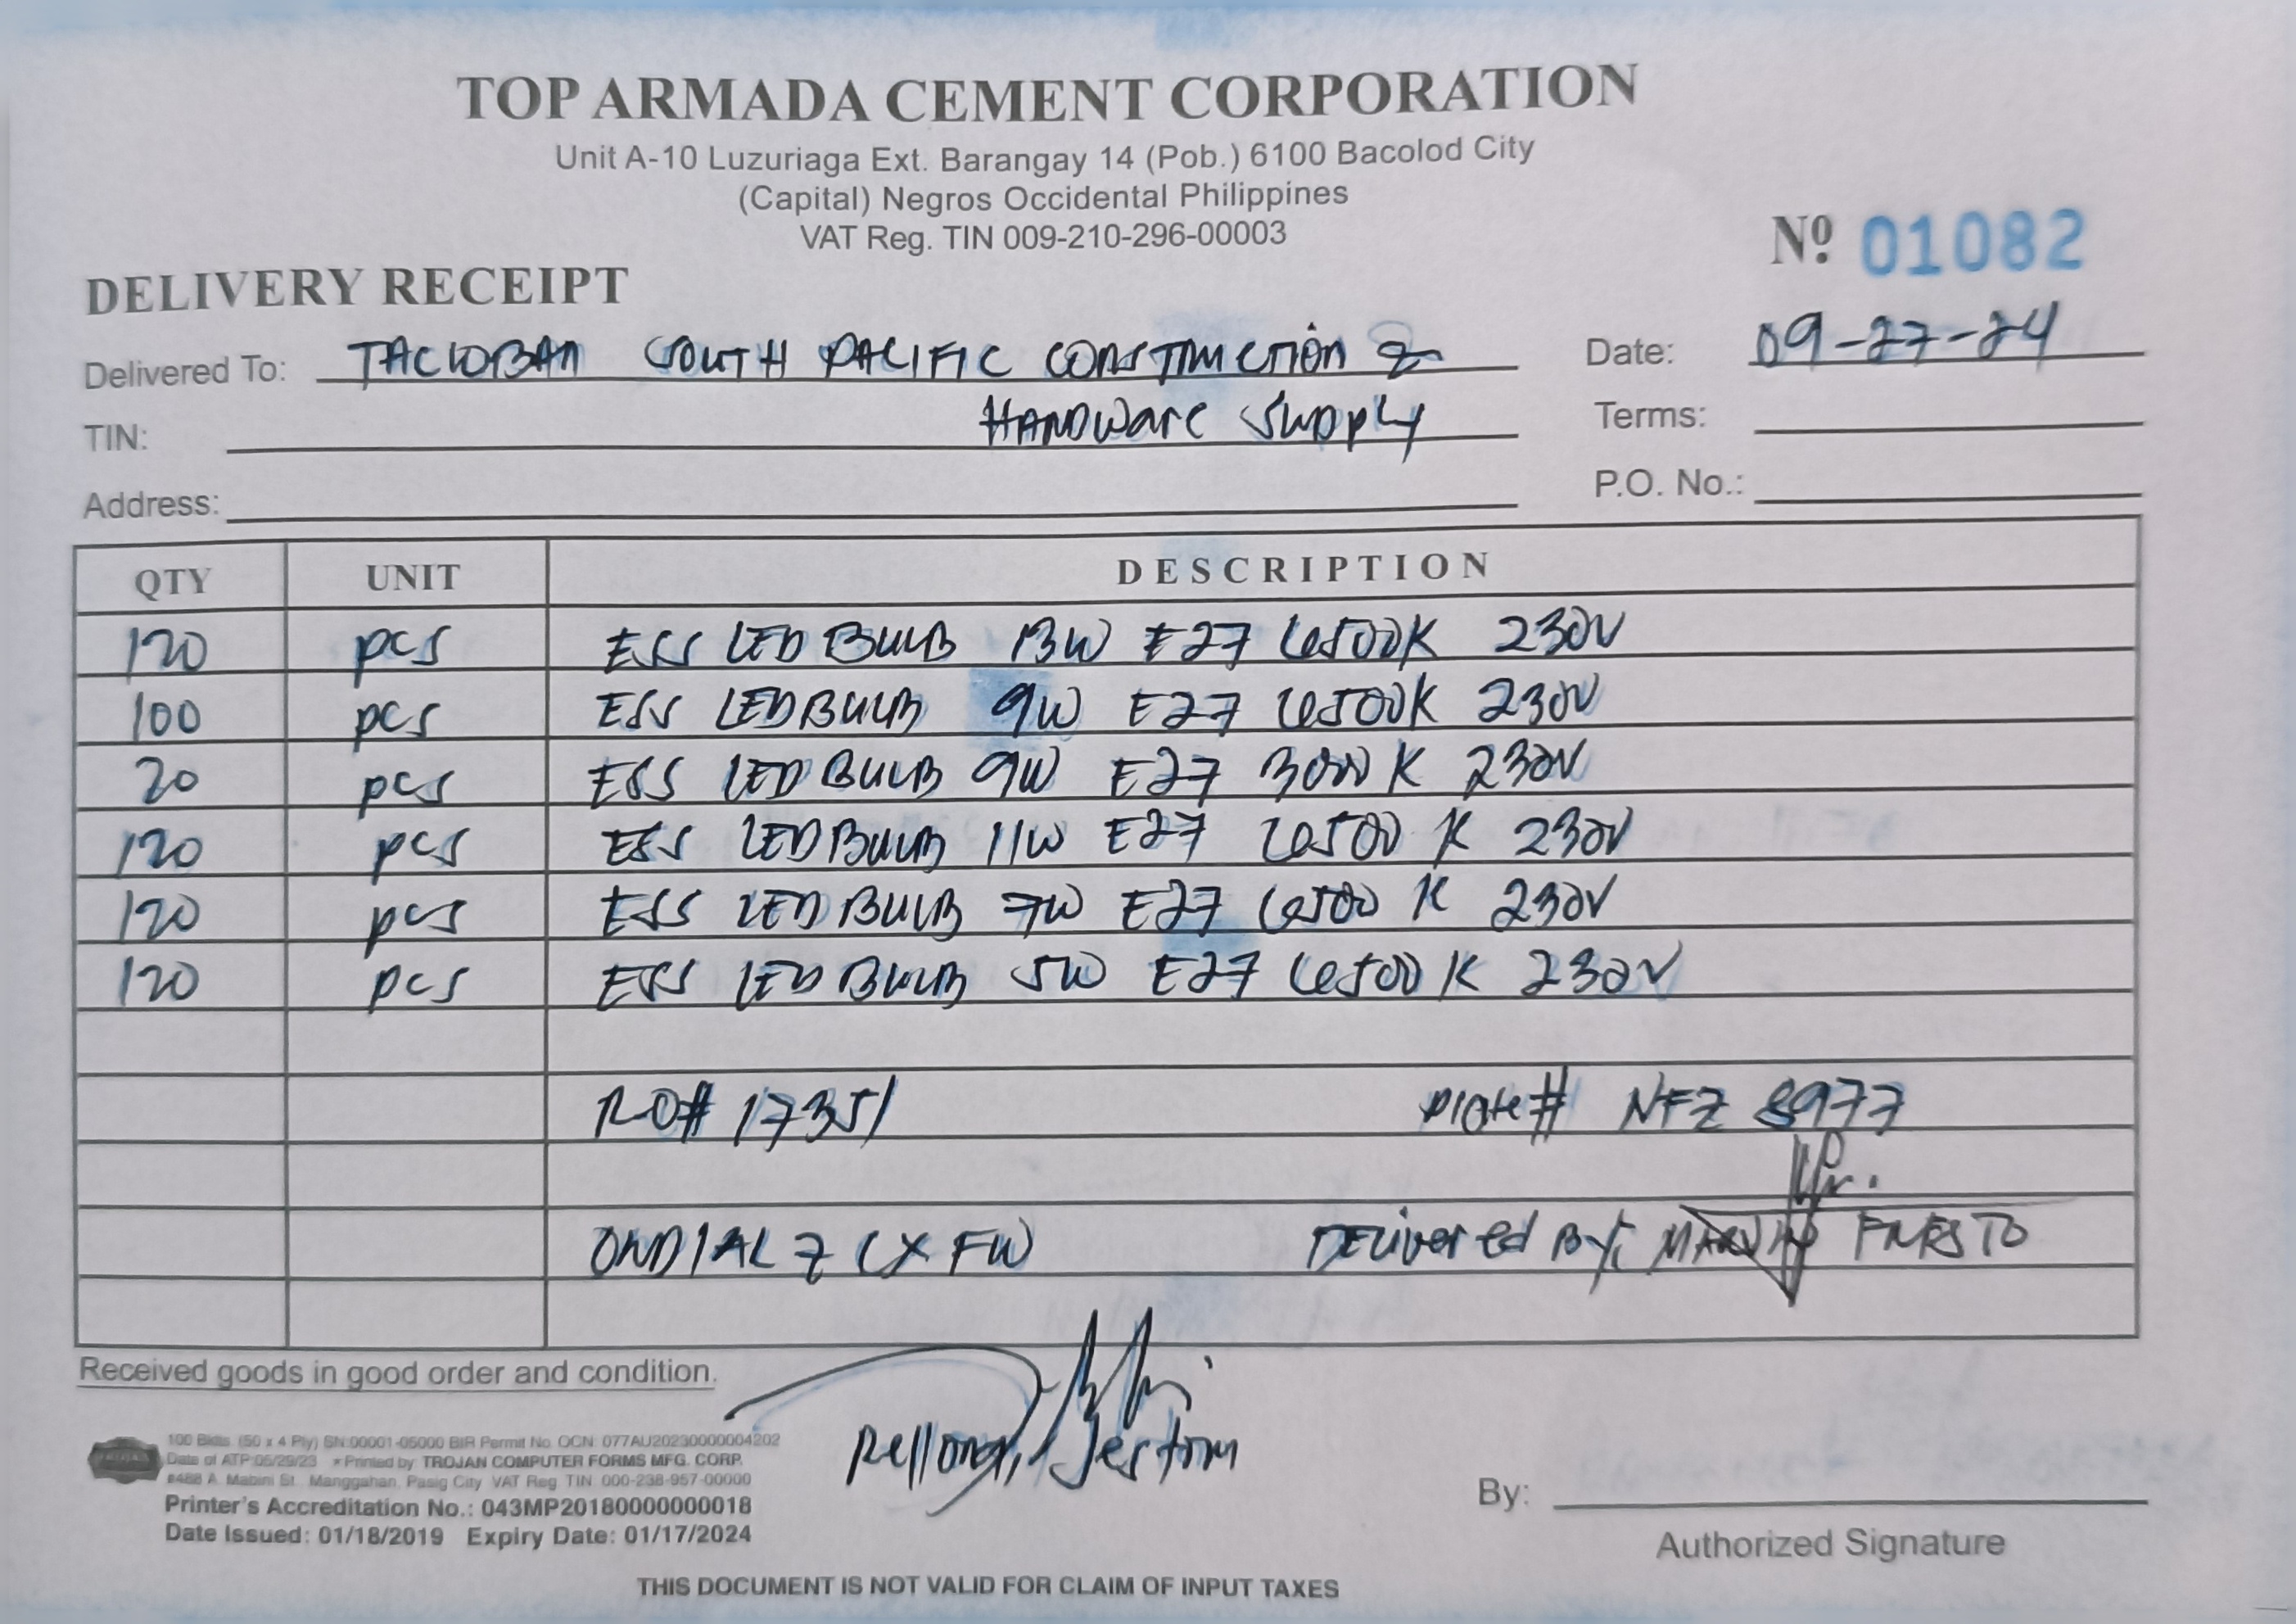 TOP ARMADA CEMENT CORPORATION
Unit A-10 Luzuriaga Ext. Barangay 14 (Pob.) 6100 Bacolod City
(Capital) Negros Occidental Philippines
VAT Reg. TIN 009-210-296-00003
Nº 01082
DELIVERY RECEIPT
Delivered To: TACLOBAN SOUTH PACIFIC CONSTRUCTION & Date: 09-27-24
HARDWARE SUPPLY
TIN: Terms:
Address: P.O. No.:
QTY UNIT DESCRIPTION
120 pcs ESS LED BULB 13W E27 6500K 230V
100 pcs ESS LED BULB 9W E27 6500K 230V
20 pcs ESS LED BULB 9W E27 3000K 230V
120 pcs ESS LED BULB 11W E27 6500K 230V
120 pcs ESS LED BULB 7W E27 6500K 230V
120 pcs ESS LED BULB 5W E27 6500K 230V
RO# 17351 Plate# NFZ 8977
DELIVERED BY:
Received goods in good order and condition.
100 Bklts. (50 x 4 Ply) SN:00001-05000 BIR Permit No. OCN: 077AU20230000004202
Date of ATP:05/29/23 • Printed by: TROJAN COMPUTER FORMS MFG. CORP.
#488 A. Mabini St., Manggahan, Pasig City VAT Reg. TIN. 000-238-957-00000
Printer's Accreditation No.: 043MP20180000000018
Date Issued: 01/18/2019 Expiry Date: 01/17/2024
By:
Authorized Signature
THIS DOCUMENT IS NOT VALID FOR CLAIM OF INPUT TAXES